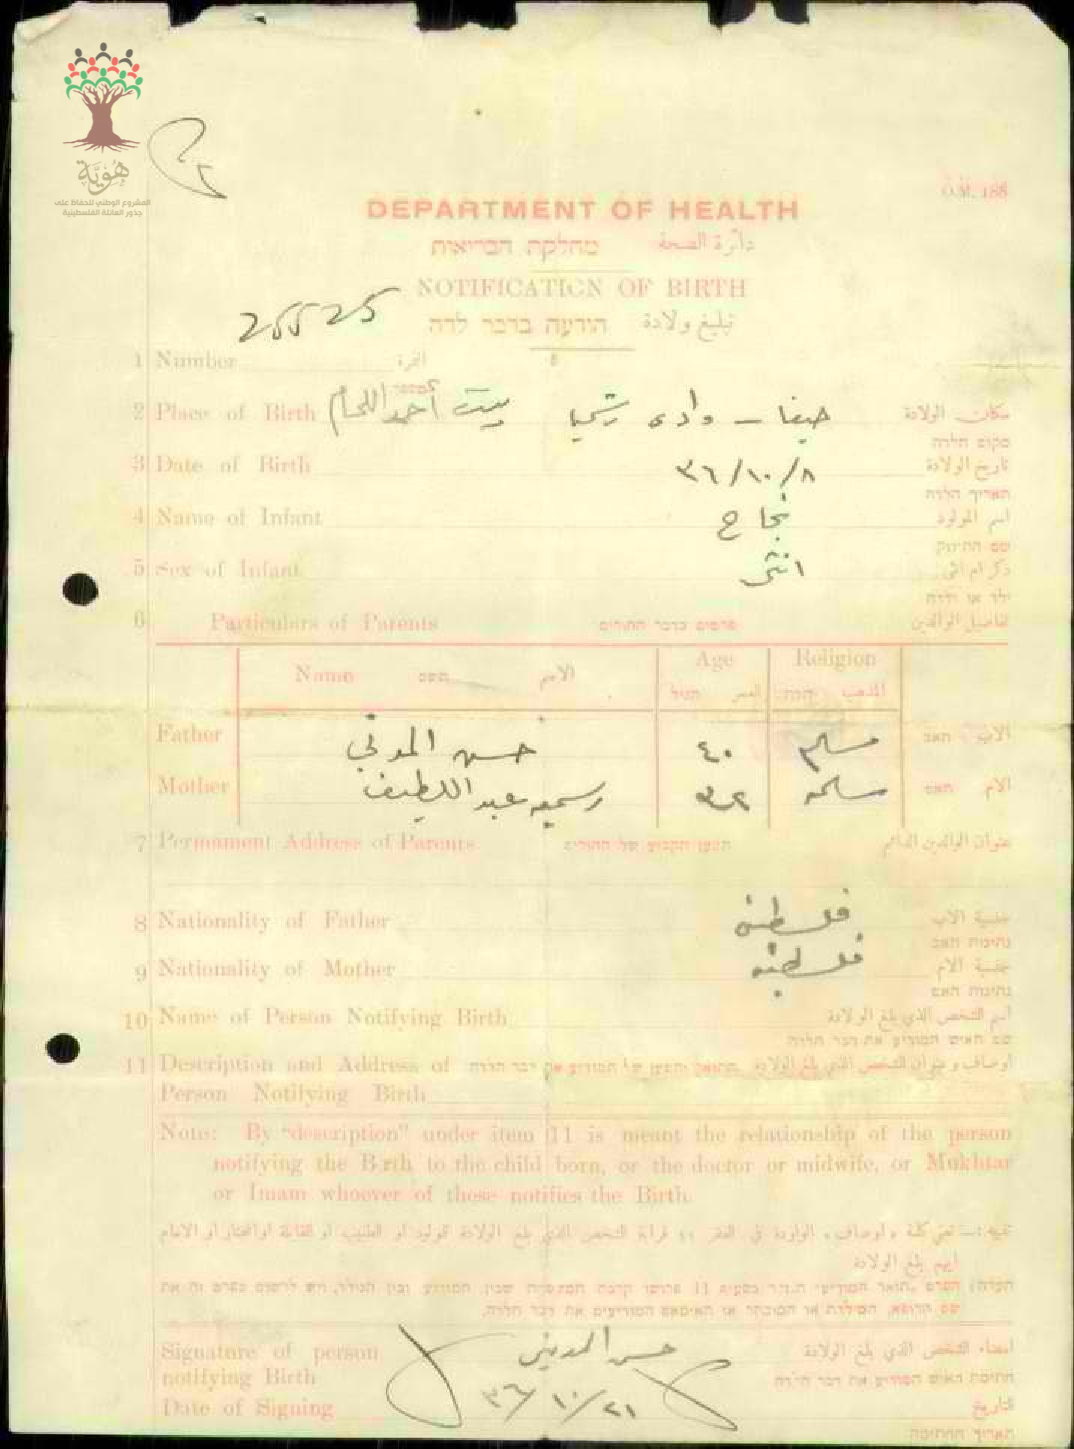 هُوِيَّة
المشروع الوطني للحفاظ على
جذور العائلة الفلسطينية
O.M. 188
DEPARTMENT OF HEALTH
מחלקת הבריאות دائرة الصحة
NOTIFICATION OF BIRTH
הודעה בדבר לדה تبليغ ولادة
25525
1 Number النمرة
המספר
2 Place of Birth حيفا - وادى رشميا بيت احمد اللحام مكان الولادة
מקום הלדה
3 Date of Birth ٣٦/١٠/٨ تاريخ الولادة
תאריך הלדה
4 Name of Infant نجاح اسم المولود
שם התינוק
5 Sex of Infant انثى ذكر ام انثى
ילד או ילדה
6 Particulars of Parents פרטים בדבר ההורים تفاصيل الوالدين
Name השם الاسم Age הגיל العمر Religion הדת المذهب
Father حسن المدني ٤٠ مسلم الاب האב
Mother رسميه عبد اللطيف ٣٢ مسلمه الام האם
7 Permament Address of Parents המען הקבוע של ההורים عنوان الوالدين الدائم
8 Nationality of Father فلسطيني جنسية الاب
נתינות האב
9 Nationality of Mother فلسطينيه جنسية الام
נתינות האם
10 Name of Person Notifying Birth اسم الشخص الذي بلغ الولادة
שם האיש המודיע את דבר הלדה
11 Description and Address of התואר והמען של המודיע את דבר הלדה اوصاف وعنوان الشخص الذي بلغ الولادة
Person Notifying Birth
Note: By "description" under item 11 is meant the relationship of the person
notifying the Birth to the child born, or the doctor or midwife, or Mukhtar
or Imam whoever of these notifies the Birth.
تنبيه :— تعني كلمة «اوصاف» الواردة في الفقرة ١١ قرابة الشخص الذي بلغ الولادة للمولود او الطبيب او القابلة او المختار او الامام
ايهم بلغ الولادة
הערה: השם "תואר המודיע" הנזכר בסעיף 11 פרושו קרבת המשפחה שבין המודיע ובין הנולד, ויש לרשום בפרט זה את
שם הרופא, המילדת או המוכתר או האימאם המודיעים את דבר הלדה.
Signature of person حسن المديني امضاء الشخص الذي بلغ الولادة
notifying Birth חתימת האיש המודיע את דבר הלדה
Date of Signing ٣٦/١٠/٢١ التاريخ
תאריך החתימה